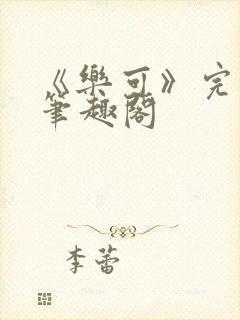 《樂可》完
筆趣閣
李蕾